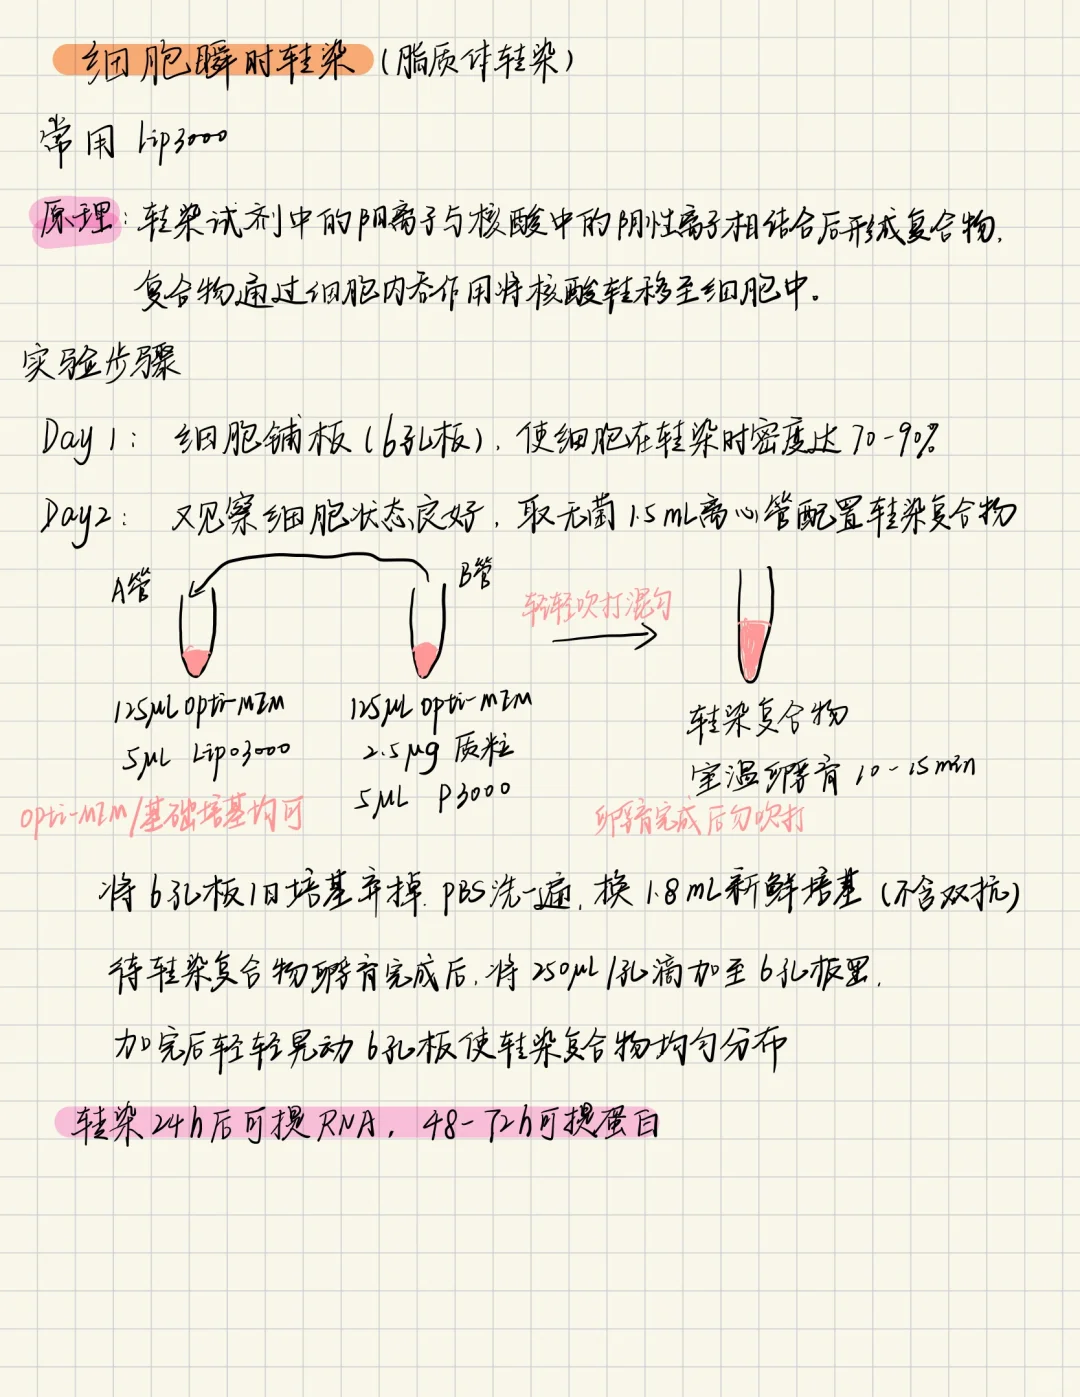 细胞瞬时转染(脂质体转染)
常用 Lip3000
原理: 转染试剂中的阳离子与核酸中的阴性离子相结合后形成复合物,
复合物通过细胞内吞作用将核酸转移至细胞中。
实验步骤
Day 1: 细胞铺板(6孔板), 使细胞在转染时密度达 70-90%
Day2: 观察细胞状态良好, 取无菌 1.5 mL离心管配置转染复合物
A管
B管
轻轻吹打混匀
125μL Opti-MEM
5μL Lipo3000
Opti-MEM/基础培基均可
125μL Opti-MEM
2.5μg 质粒
5μL P3000
转染复合物
室温孵育 10-15min
孵育完成后勿吹打
将6孔板旧培基弃掉. PBS洗一遍, 换 1.8 mL新鲜培基 (不含双抗)
待转染复合物孵育完成后, 将 250μL/孔滴加至6孔板里,
加完后轻轻晃动6孔板使转染复合物均匀分布
转染24h后可提RNA, 48-72h可提蛋白